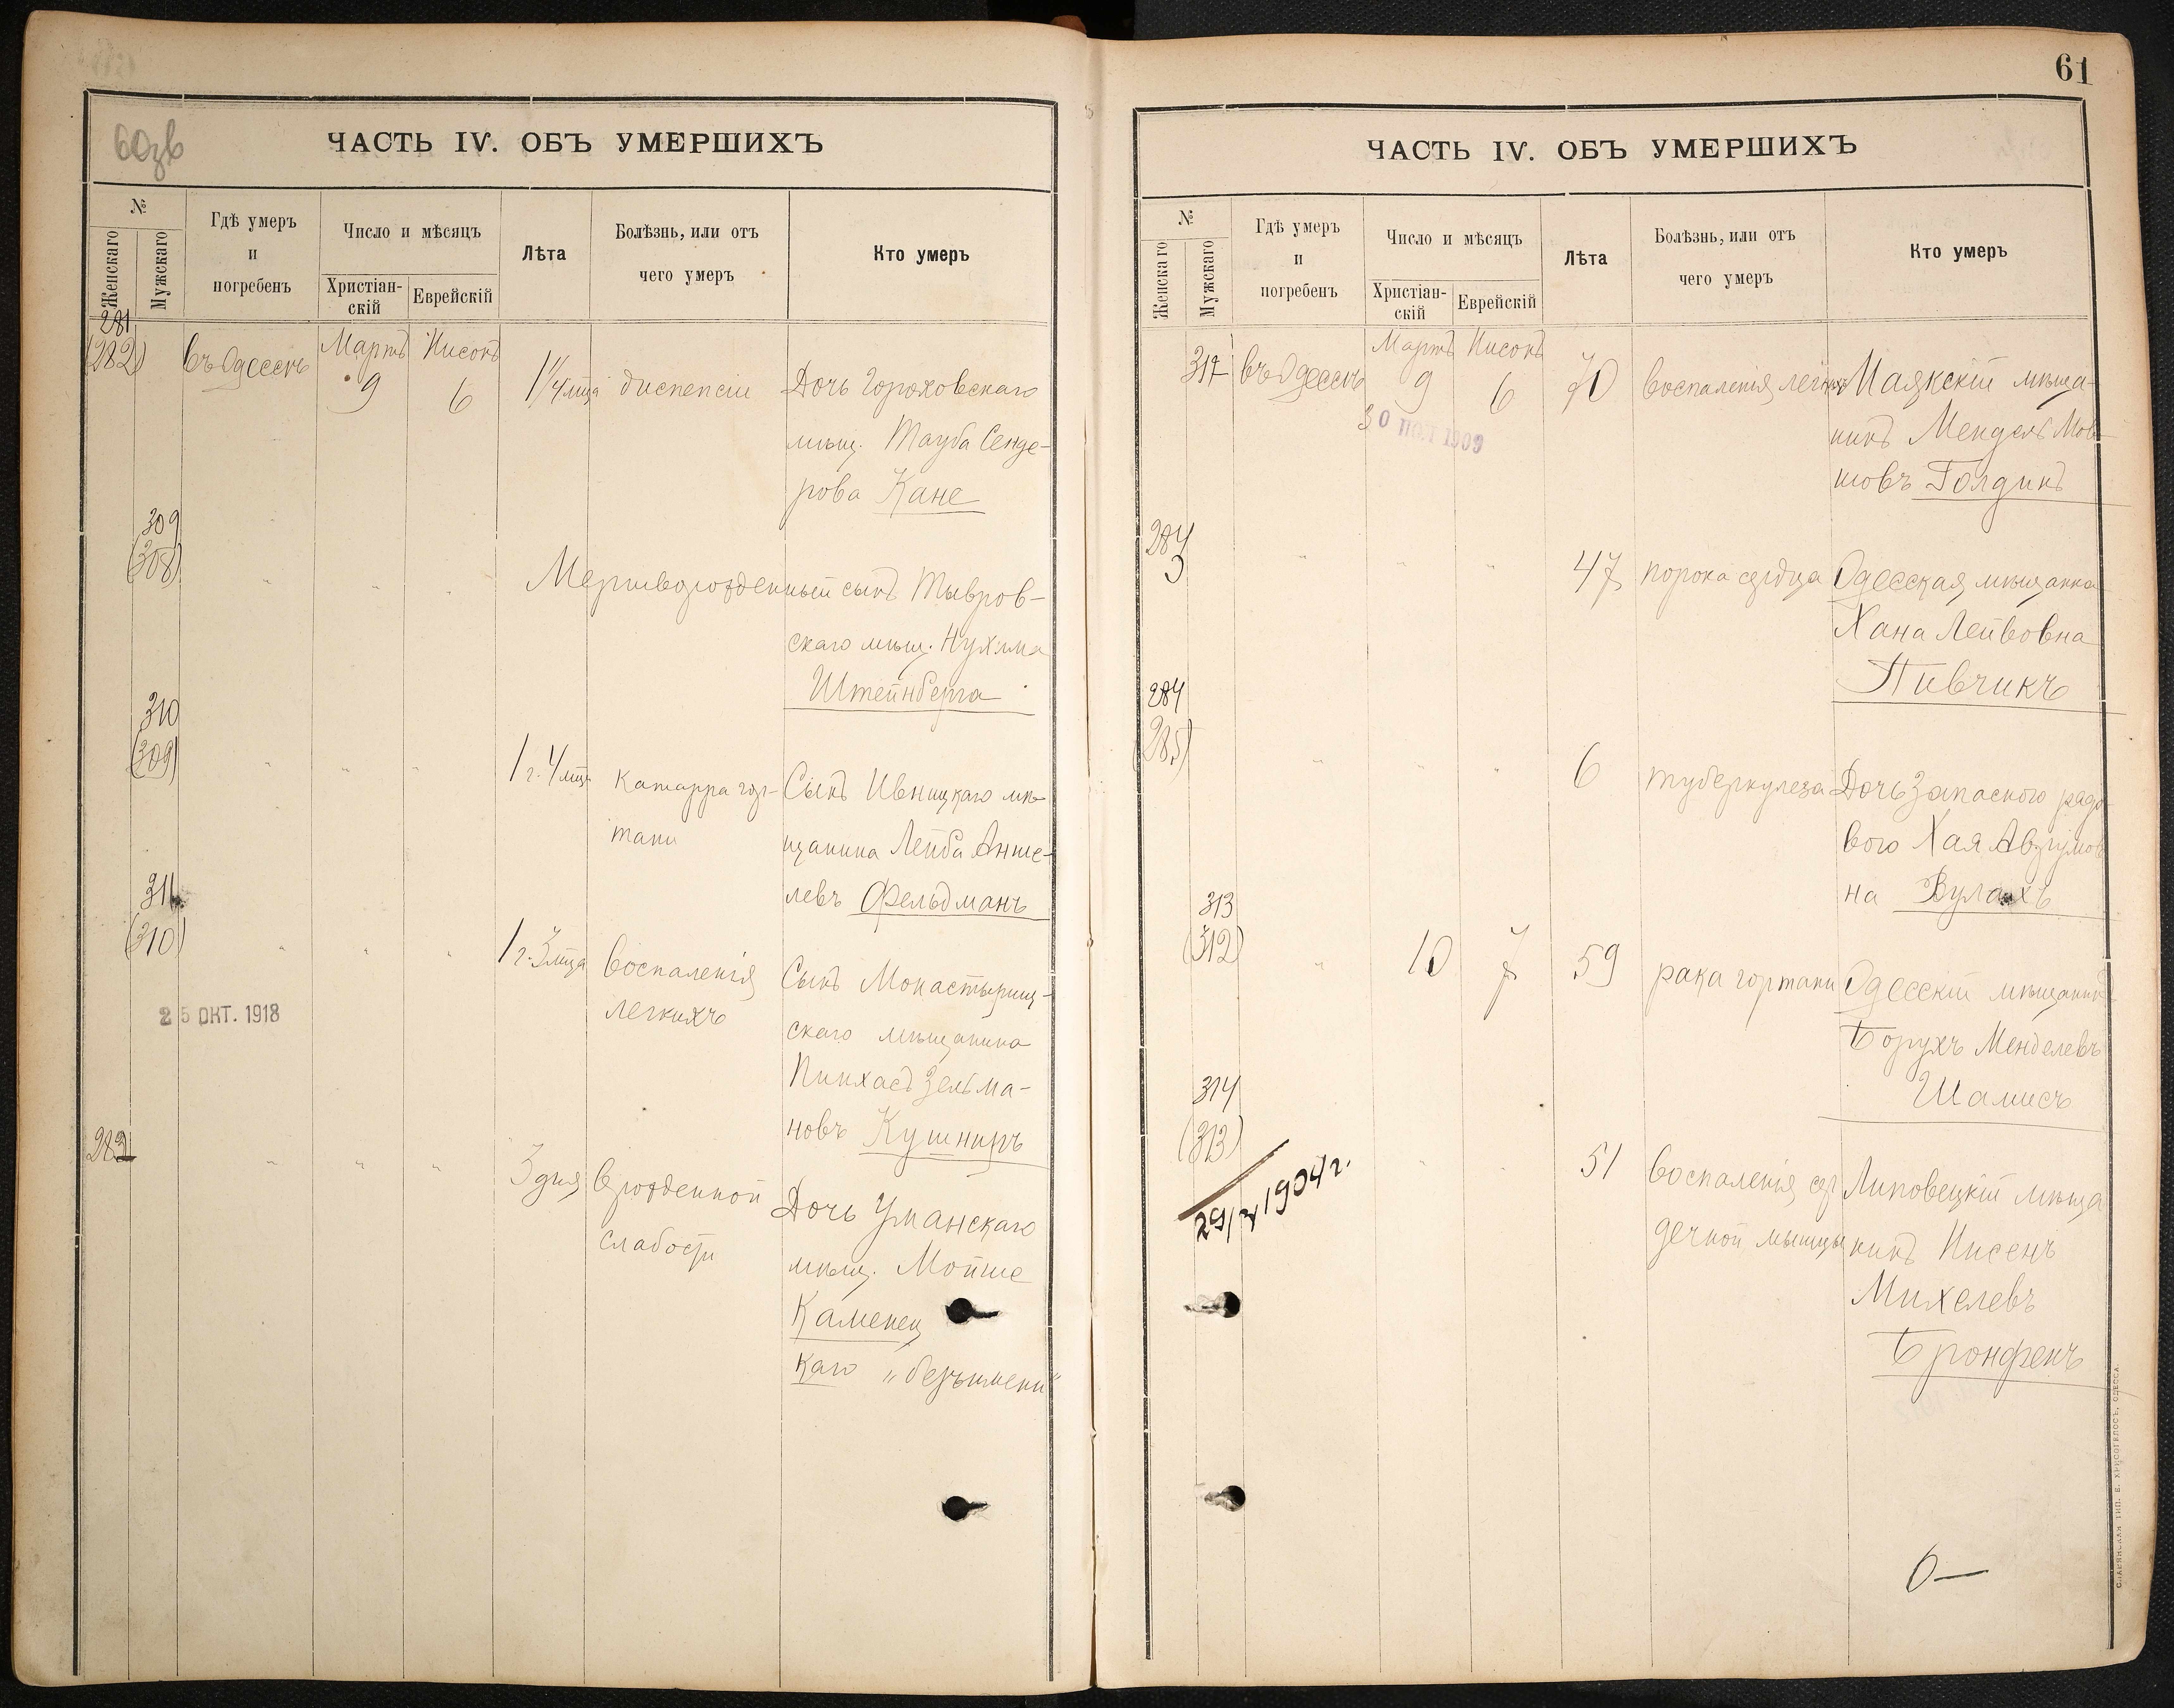 60зв
ЧАСТЬ IV. ОБЪ УМЕРШИХЪ
№
Женскаго
Мужскаго
Гдѣ умеръ
и
погребенъ
Число и мѣсяцъ
Христіан-
скій
Еврейскій
Лѣта
Болѣзнь, или отъ
чего умеръ
Кто умеръ
281
(282)
въ Одессѣ
Мартъ
9
Нисонъ
6
1 1/4 мца
диспепсіи
Дочь Гороховскаго
мѣщ. Тауба Сенде-
рова Кане
309
(308)
Мертворожденный сынъ Тывров-
скаго мѣщ. Нухима
Штейнберга
310
(309)
1 г. 4 мца
катарра гор-
тани
Сынъ Ивницкаго мѣ-
щанина Лейба Анше-
левъ Фельдманъ
311
(310)
1 г. 3 мца
воспаленія
легкихъ
Сынъ Монастырищ-
скаго мѣщанина
Пинхасъ Зельма-
новъ Кушниръ
25 ОКТ. 1918
283
3 дня
врожденной
слабости
Дочь Уманскаго
мѣщ. Мойше
Каменец
каго „безъимени"
61
ЧАСТЬ IV. ОБЪ УМЕРШИХЪ
№
Женскаго
Мужскаго
Гдѣ умеръ
и
погребенъ
Число и мѣсяцъ
Христіан-
скій
Еврейскій
Лѣта
Болѣзнь, или отъ
чего умеръ
Кто умеръ
въ Одессѣ
Мартъ
9
Нисонъ
6
70
воспаленія легкихъ
Маякскій мѣща-
нинъ Мендель Мов-
шовъ Голдинъ
1909
284
47
порока сердца
Одесская мѣщанка
Хана Лейбовна
Пивчикъ
284
(285)
6
туберкулеза
Дочь запасного рядо-
вого Хая Аврумов
на Вулахъ
313
(312)
10
7
59
рака гортани
Одесскій мѣщанинъ
Борухъ Менделевъ
Шамисъ
314
(313)
51
воспаленія сер
дечной мышцы
Липовецкій мѣща
нинъ Нисенъ
Михелевъ
Бронфенъ
1904 г.
СЛАВЯНСКАЯ ТИП. Е. ХРИСОГЕЛОСЪ, ОДЕССА.